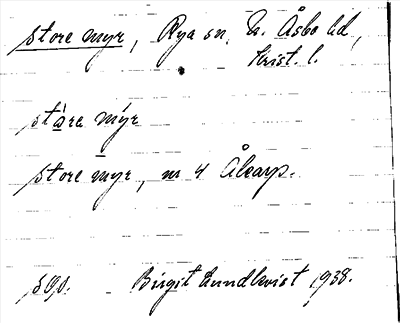 store myr, Rya sn, N. Åsbo hd,
Krist. l.
stara myr
store myr, nr 4 Åkarp.
Birgit Lundkvist 1938.